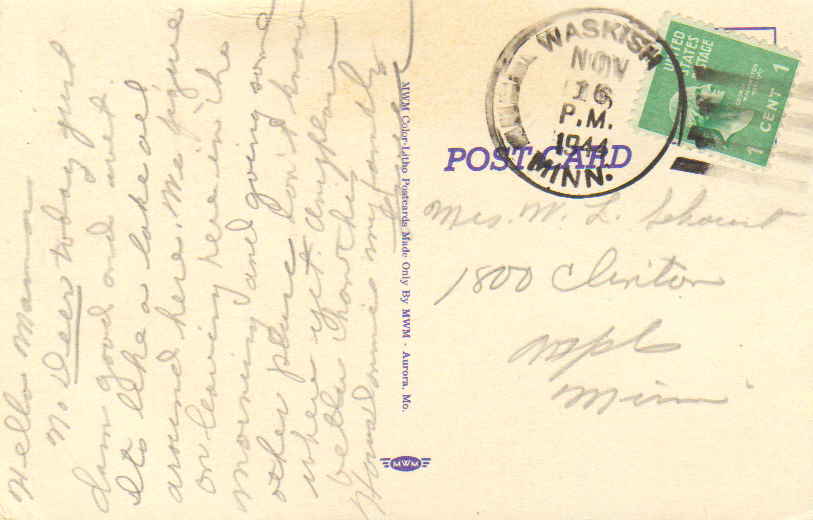 Hello Mama
No Deer today just
dam good and wet
Its like a lake all
around here. We figure
on leaving here in the
morning and going some
other place dont know
where yet. Anyplace
better than this
How is
WASKISH
NOV
16
P.M.
1944
MINN.
UNITED
STATES
POSTAGE
1 CENT 1
POST CARD
Mrs. W. L.
1800 Clinton
Mpls
Minn
MWM Color-Litho Postcards Made Only By MWM - Aurora, Mo.
MWM